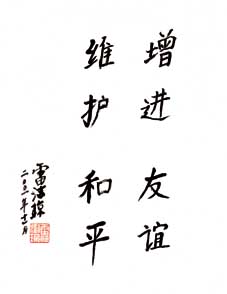 增进友谊
维护和平
雷洁琼
二〇〇一年十二月